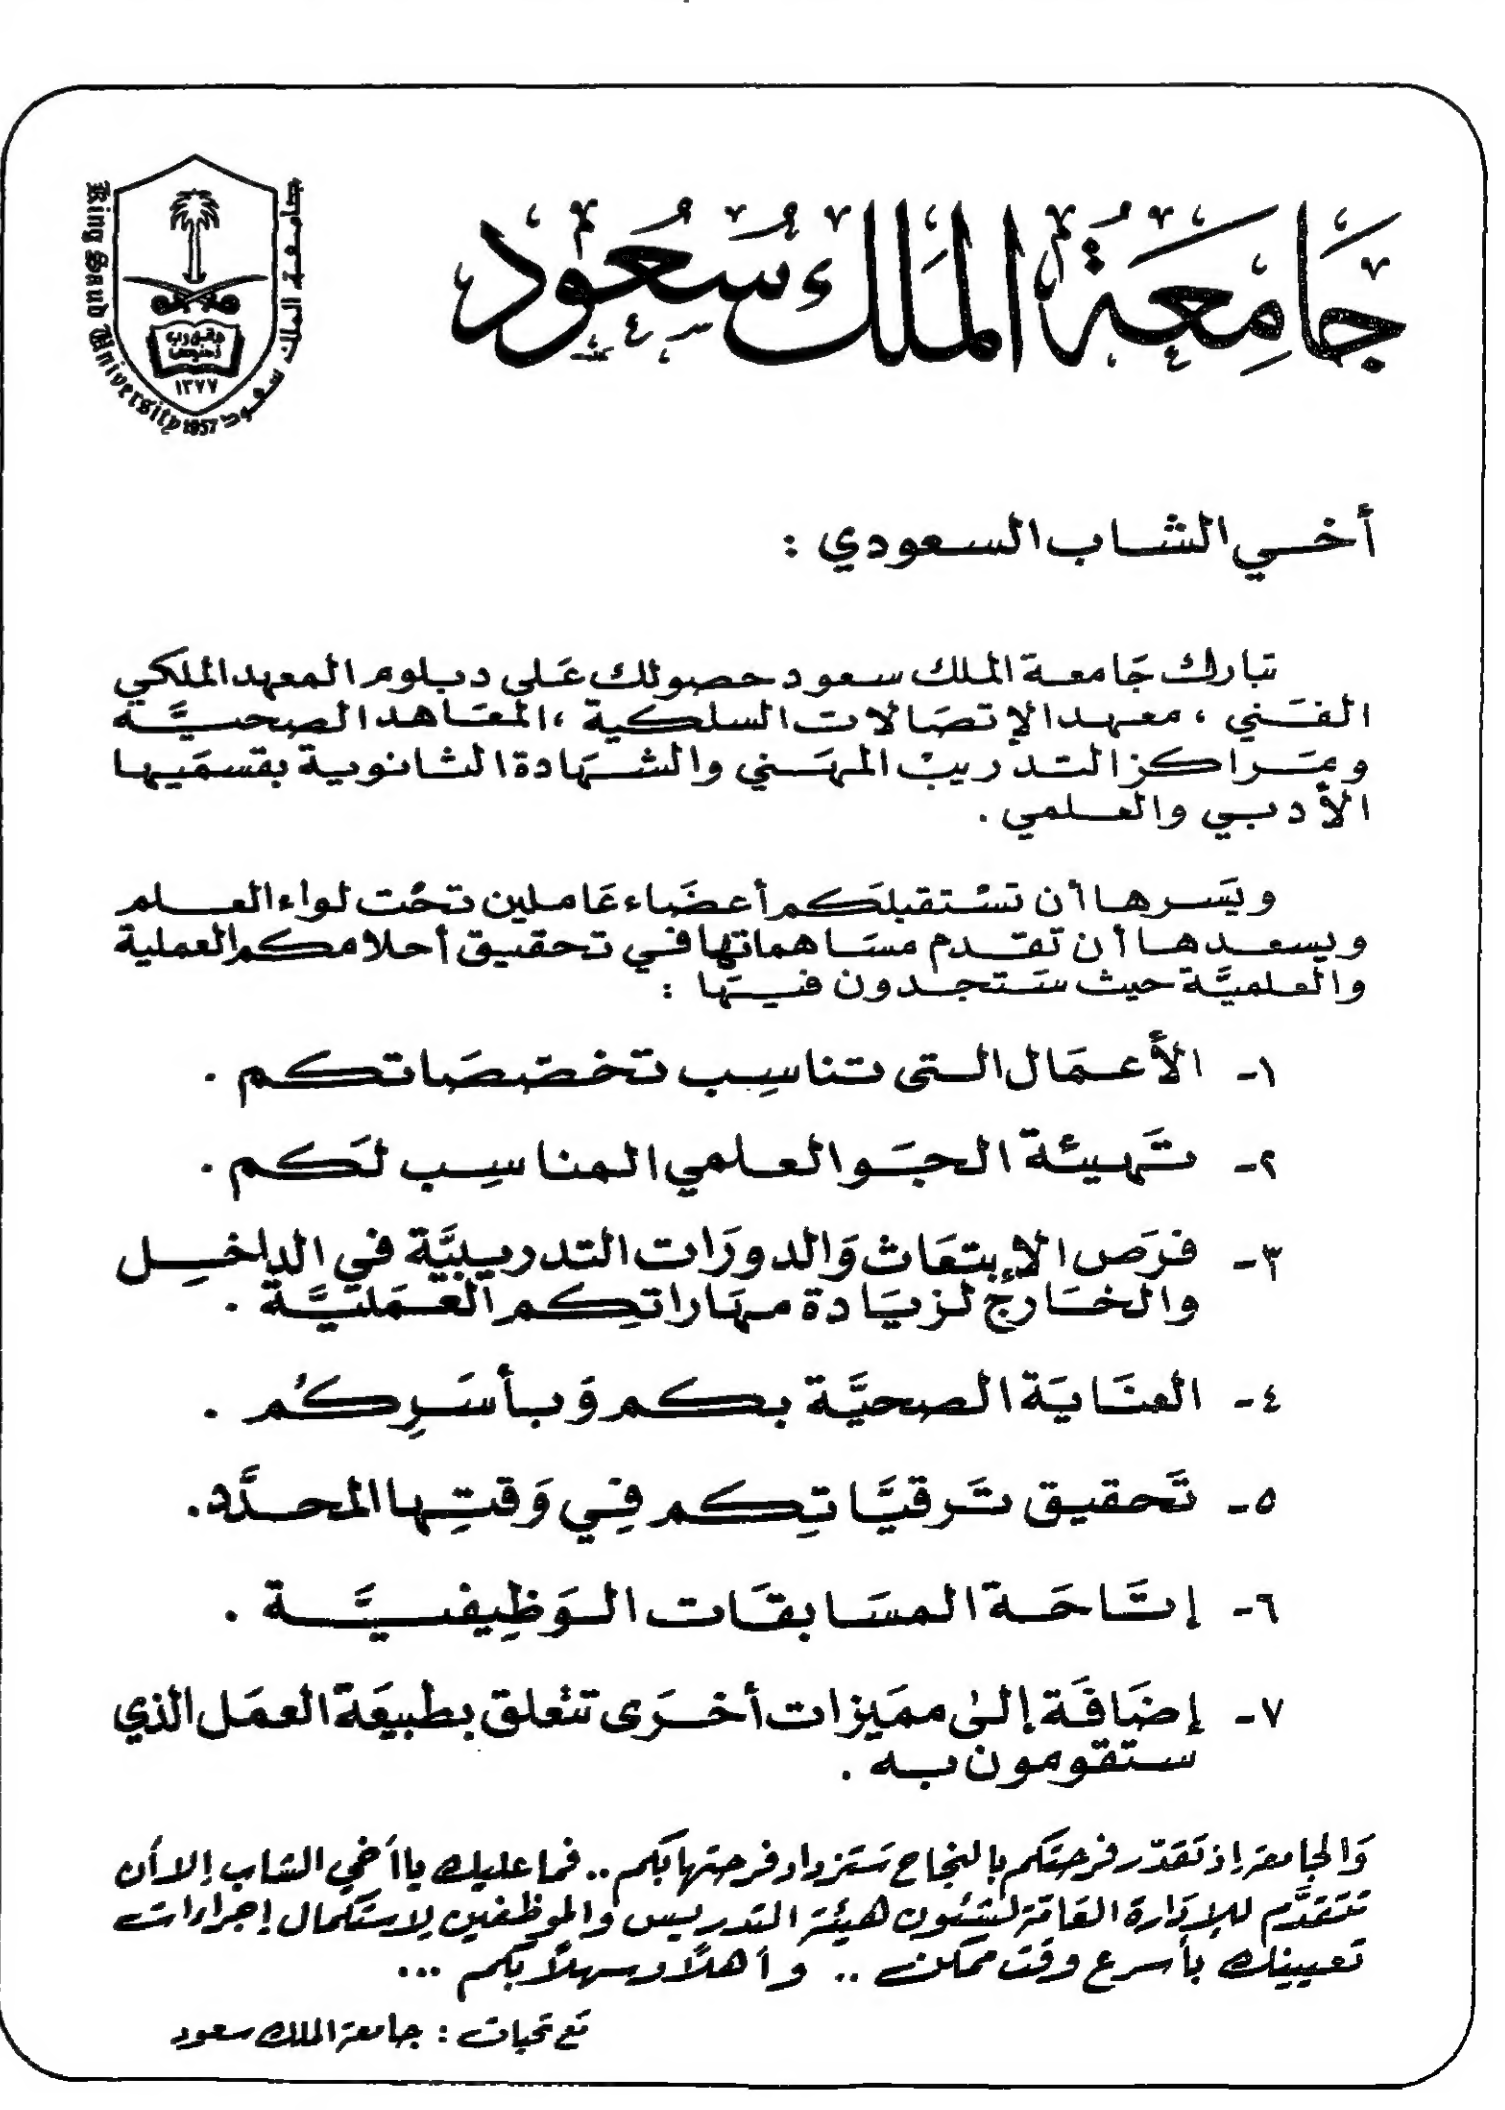 جَامِعَةُ المَلِك سُعُود
جامعة الملك سعود
King Saud University 1957
١٣٧٧
أخي الشاب السعودي :
تبارك جَامعة الملك سعود حصولك عَلى دبلوم المعهد الملَكي
الفَني ، معهد الإتصَالات السلكية ، المعَاهد الصحيَّة
ومَراكز التدريبْ المهَني والشهَادة الثانوية بقسمَيها
الأدبي والعلمي .
ويَسرها أن تسْتقبلَكم أعضَاء عَاملين تحْت لواء العلم
ويسعدها أن تقدم مسَاهماتها في تحقيق أحلامكم العملية
والعلميَّة حيث ستَجدون فيهَا :
١- الأعمَال التى تناسِب تخصّصَاتكم .
٢- تَهيئة الجَو العلمي المناسِب لَكم .
٣- فرَص الإبتعَاث وَالدورَات التدريبيَّة في الداخِل
والخَارج لزيَادة مهَاراتِكم العَمَليَّة .
٤- العنَايَة الصحيَّة بكم وَبأسَرِكُم .
٥- تَحقيق تَرقيَّاتِكم فِي وَقتِها المحدَّد.
٦- إتَاحَة المسَابقَات الوَظِيفيَّة .
٧- إضَافَة إلىٰ ممَيزات أخرَى تتْعلق بطبيعَة العمَل الذي
ستقومون به .
وَالجامعة إذ تقَدّر فرحتَكم بالنجاح سَتزداد فرحتها بكم .. فما عليك ياأخي الشاب إلا أن
تتَقدَّم للإدَارة العَامَّة لشئون هيئة التدريس والموظفين لإستكمال إجراءات
تعيينك بأسرع وقت ممكن .. وأهلاً وسهلاً بكم ...
مَع تحيات : جامعة الملك سعود